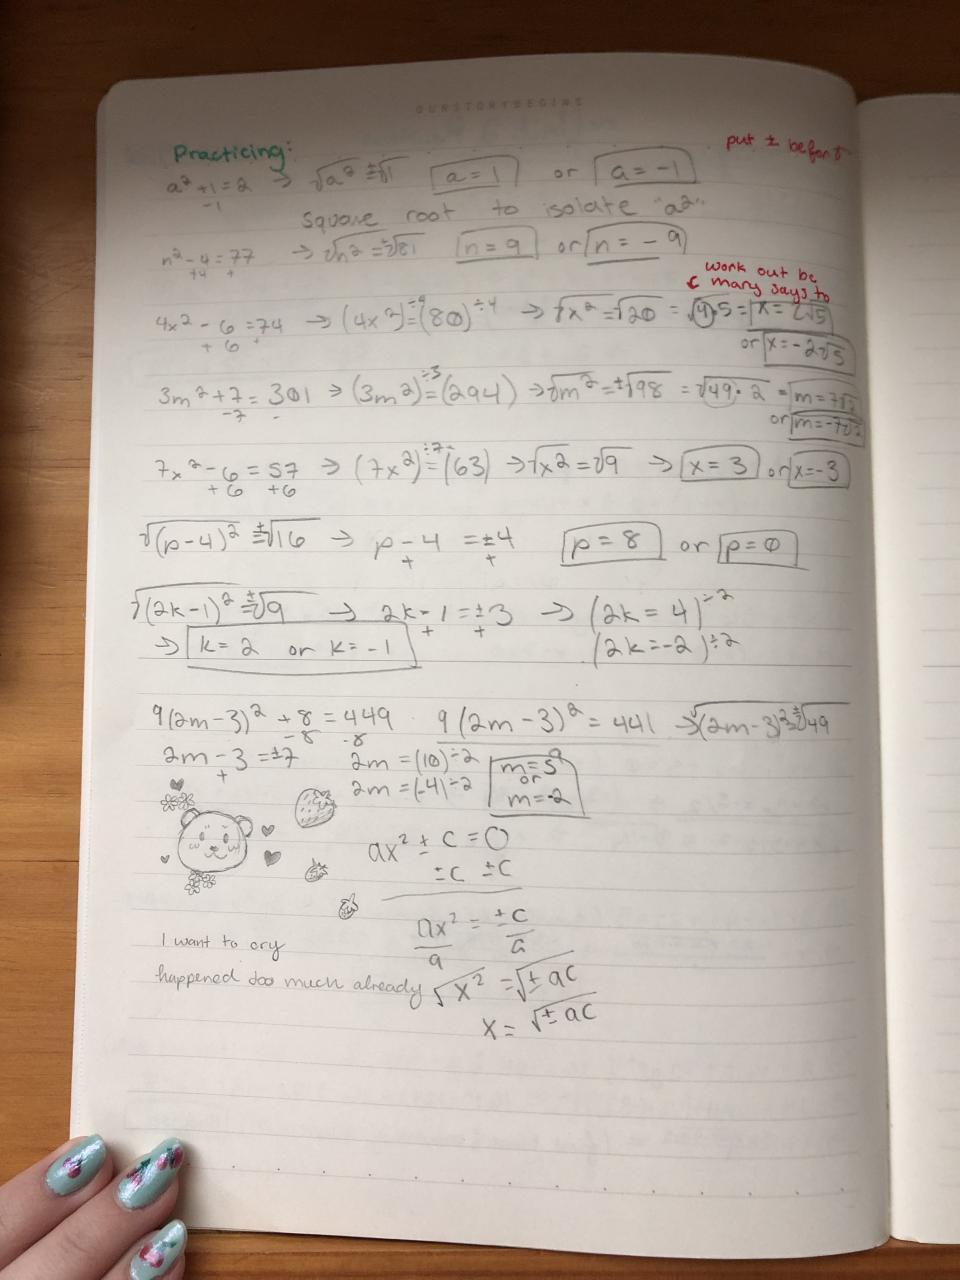 OURSTORYBEGINS
put ± before √
Practicing:
a² + 1 = 2 → √a² = ±√1 a = 1 or a = -1
-1
square root to isolate "a²"
n² - 4 = 77 → √n² = ±√81 n = 9 or n = -9
+4 +
work out be
many says to
4x² - 6 = 74 → (4x²) = (80) ÷4 → √x² = √20 = √4·5 = x = 2√5
+ 6 +
or x = -2√5
3m² + 7 = 301 → (3m²) ÷3 = (294) → √m² = ±√98 = √49·2 = m = 7√2
-7 -
or m = -7√2
7x² - 6 = 57 → (7x²) ÷7 = (63) → √x² = √9 → x = 3 or x = -3
+ 6 +6
√(p-4)² = ±√16 → p - 4 = ±4 p = 8 or p = 0
+ +
√(2k-1)² = ±√9 → 2k - 1 = ±3 → (2k = 4) ÷2
+ +
→ k = 2 or k = -1 (2k = -2) ÷2
9(2m-3)² + 8 = 449 9(2m-3)² = 441 → √(2m-3)² = ±√49
-8 -8
2m - 3 = ±7 2m = (10) ÷2 m = 5
+ or
2m = (-4) ÷2 m = -2
ax² ± c = 0
±c ±c
ax² = ±c
a a
I want to cry
happened too much already √x² = √± ac
x = √± ac